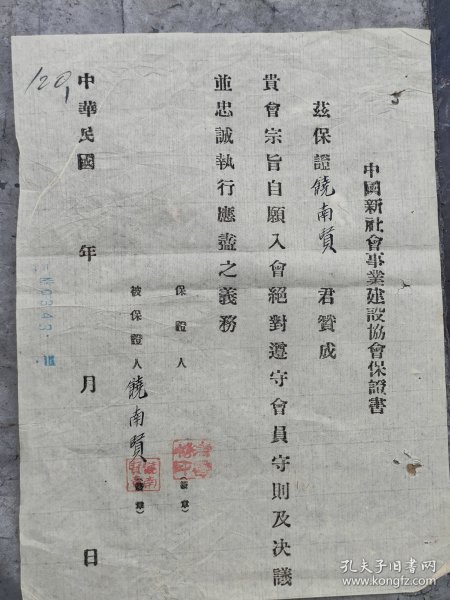 中國新社會事業建設協會保證書
茲保證饒南賢 君贊成
貴會宗旨自願入會絕對遵守會員守則及決議
並忠誠執行應盡之義務
保證人 (簽章)
被保證人饒南賢 (簽章)
中華民國 年 月 日
120
孔夫子旧书网
www.kongfz.com